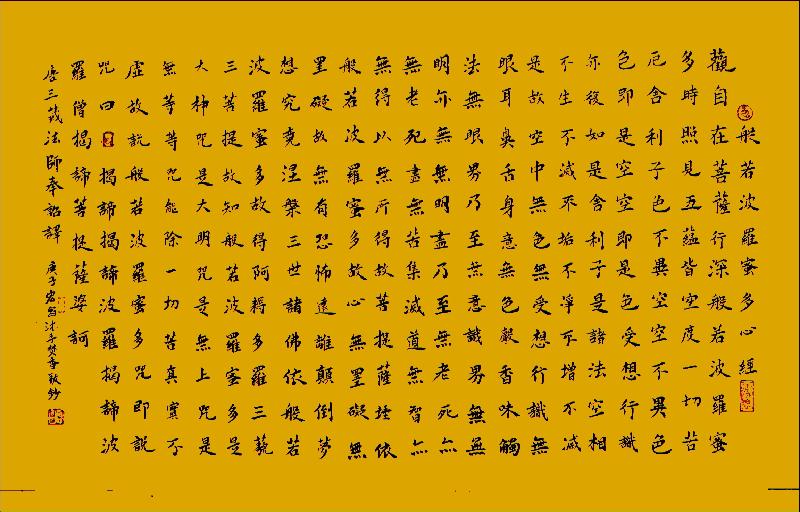 般若波羅蜜多心經
觀自在菩薩行深般若波羅蜜
多時照見五蘊皆空度一切苦
厄舍利子色不異空空不異色
色即是空空即是色受想行識
亦復如是舍利子是諸法空相
不生不滅不垢不淨不增不減
是故空中無色無受想行識無
眼耳鼻舌身意無色聲香味觸
法無眼界乃至無意識界無無
明亦無無明盡乃至無老死亦
無老死盡無苦集滅道無智亦
無得以無所得故菩提薩埵依
般若波羅蜜多故心無罣礙無
罣礙故無有恐怖遠離顛倒夢
想究竟涅槃三世諸佛依般若
波羅蜜多故得阿耨多羅三藐
三菩提故知般若波羅蜜多是
大神咒是大明咒是無上咒是
無等等咒能除一切苦真實不
虛故說般若波羅蜜多咒即說
咒曰 揭諦揭諦波羅揭諦波
羅僧揭諦菩提薩婆訶
唐三藏法師奉詔譯 庚子沐手焚香敬鈔